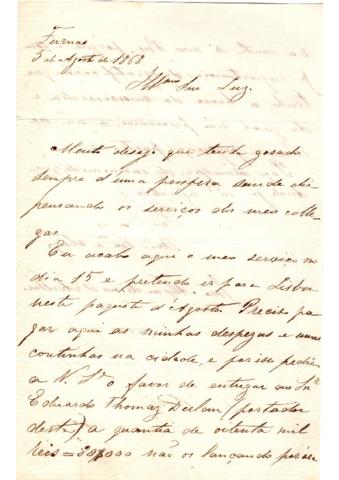 Furnas
5 de Agosto de 1868
Illmo Snr Luz.
Muito desejo que tenha gosado
sempre d'uma prospera saude dis
pensando os serviços dos meus colle
gas.
Eu acabo aqui o meu serviço no
dia 15 e pretendo ir para Lisboa
neste paquete d'Agosto. Preciso pa
gar aqui as minhas despezas e umas
continhas na cidade, e por isso pedia
a V. Sa o favor de entregar ao Snr
Eduardo Thomaz (portador
desta) a quantia de oitenta mil
reis = 80$000 não os lançando por